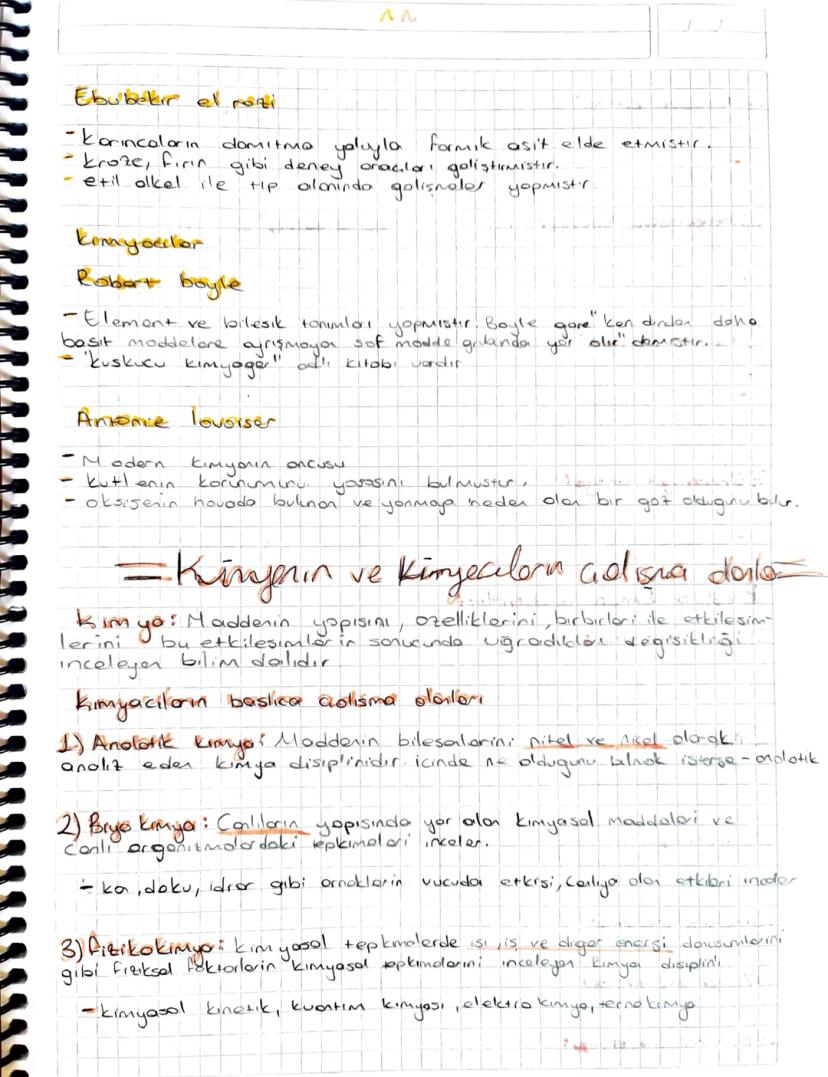 Ebubekir el razi
- karıncaların damıtma yoluyla formik asit elde etmiştir.
- kroze, fırın gibi deney araçları geliştirmiştir.
- etil alkol ile tıp alanında gelişmeler yapmıştır.
kimyacılar
Robert boyle
- Element ve bileşik tanımları yapmıştır. Boyle göre "kendinden daha
basit maddelere ayrışmayan saf madde grubunda yer alır" demiştir.
- "kuşkucu kimyager" adlı kitabı vardır
Antonie lavoiser
- Modern kimyanın öncüsü
- kütlenin korunumunu yasasını bulmuştur.
- oksijenin havada bulunan ve yanmaya neden olan bir gaz olduğunu bulur.
= Kimyanın ve kimyacıların çalışma =
kimya: Maddenin yapısını, özelliklerini, birbirleri ile etkileşim-
lerini bu etkileşimlerin sonucunda uğradıkları değişikliği
inceleyen bilim dalıdır.
kimyacıların başlıca çalışma alanları
1) Analatik kimya: Maddenin bileşenlerini nitel ve nicel olarak
analiz eden kimya disiplinidir. içinde ne olduğunu bilmek isterse - analatik
2) Biyo kimya: Canlıların yapısında yer alan kimyasal maddeleri ve
canlı organizmalardaki tepkimeleri inceler.
- kan, doku, idrar gibi örneklerin vücuda etkisi, canlıya olan etkileri inceler
3) fizikokimya: kimyasal tepkimelerde ısı, iş ve diğer enerji dönüşümlerini
gibi fiziksel faktörlerin kimyasal tepkimelerini inceleyen kimya disiplini
- kimyasal kinetik, kuantım kimyası, elektro kimya, termo kimya